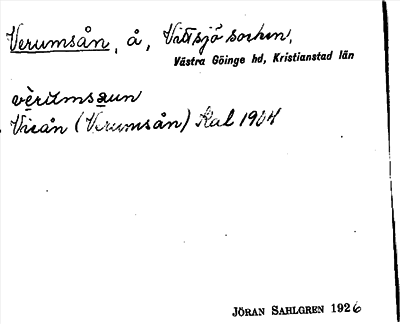 Verumsån, å, Vittsjö socken,
Västra Göinge hd, Kristianstad län
vèrumsaun
Vieån (Verumsån) Kal 1964
JÖRAN SAHLGREN 1926